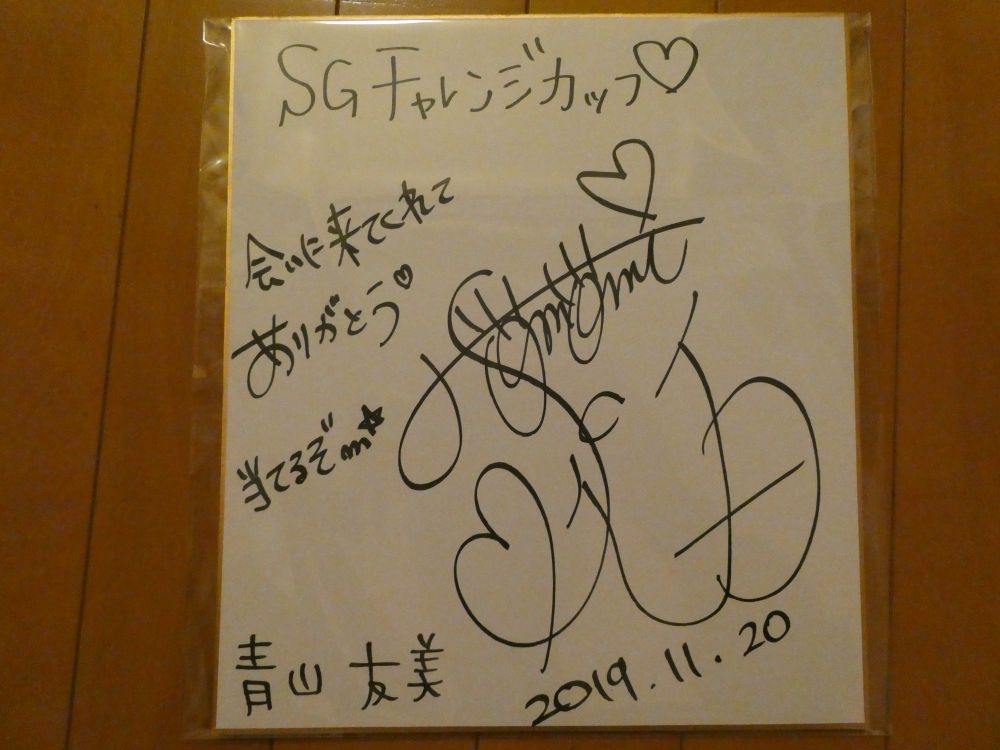 SGチャレンジカップ♡
会いに来てくれて
ありがとう♡
当てるぞm☆
青山 友美
2019.11.20